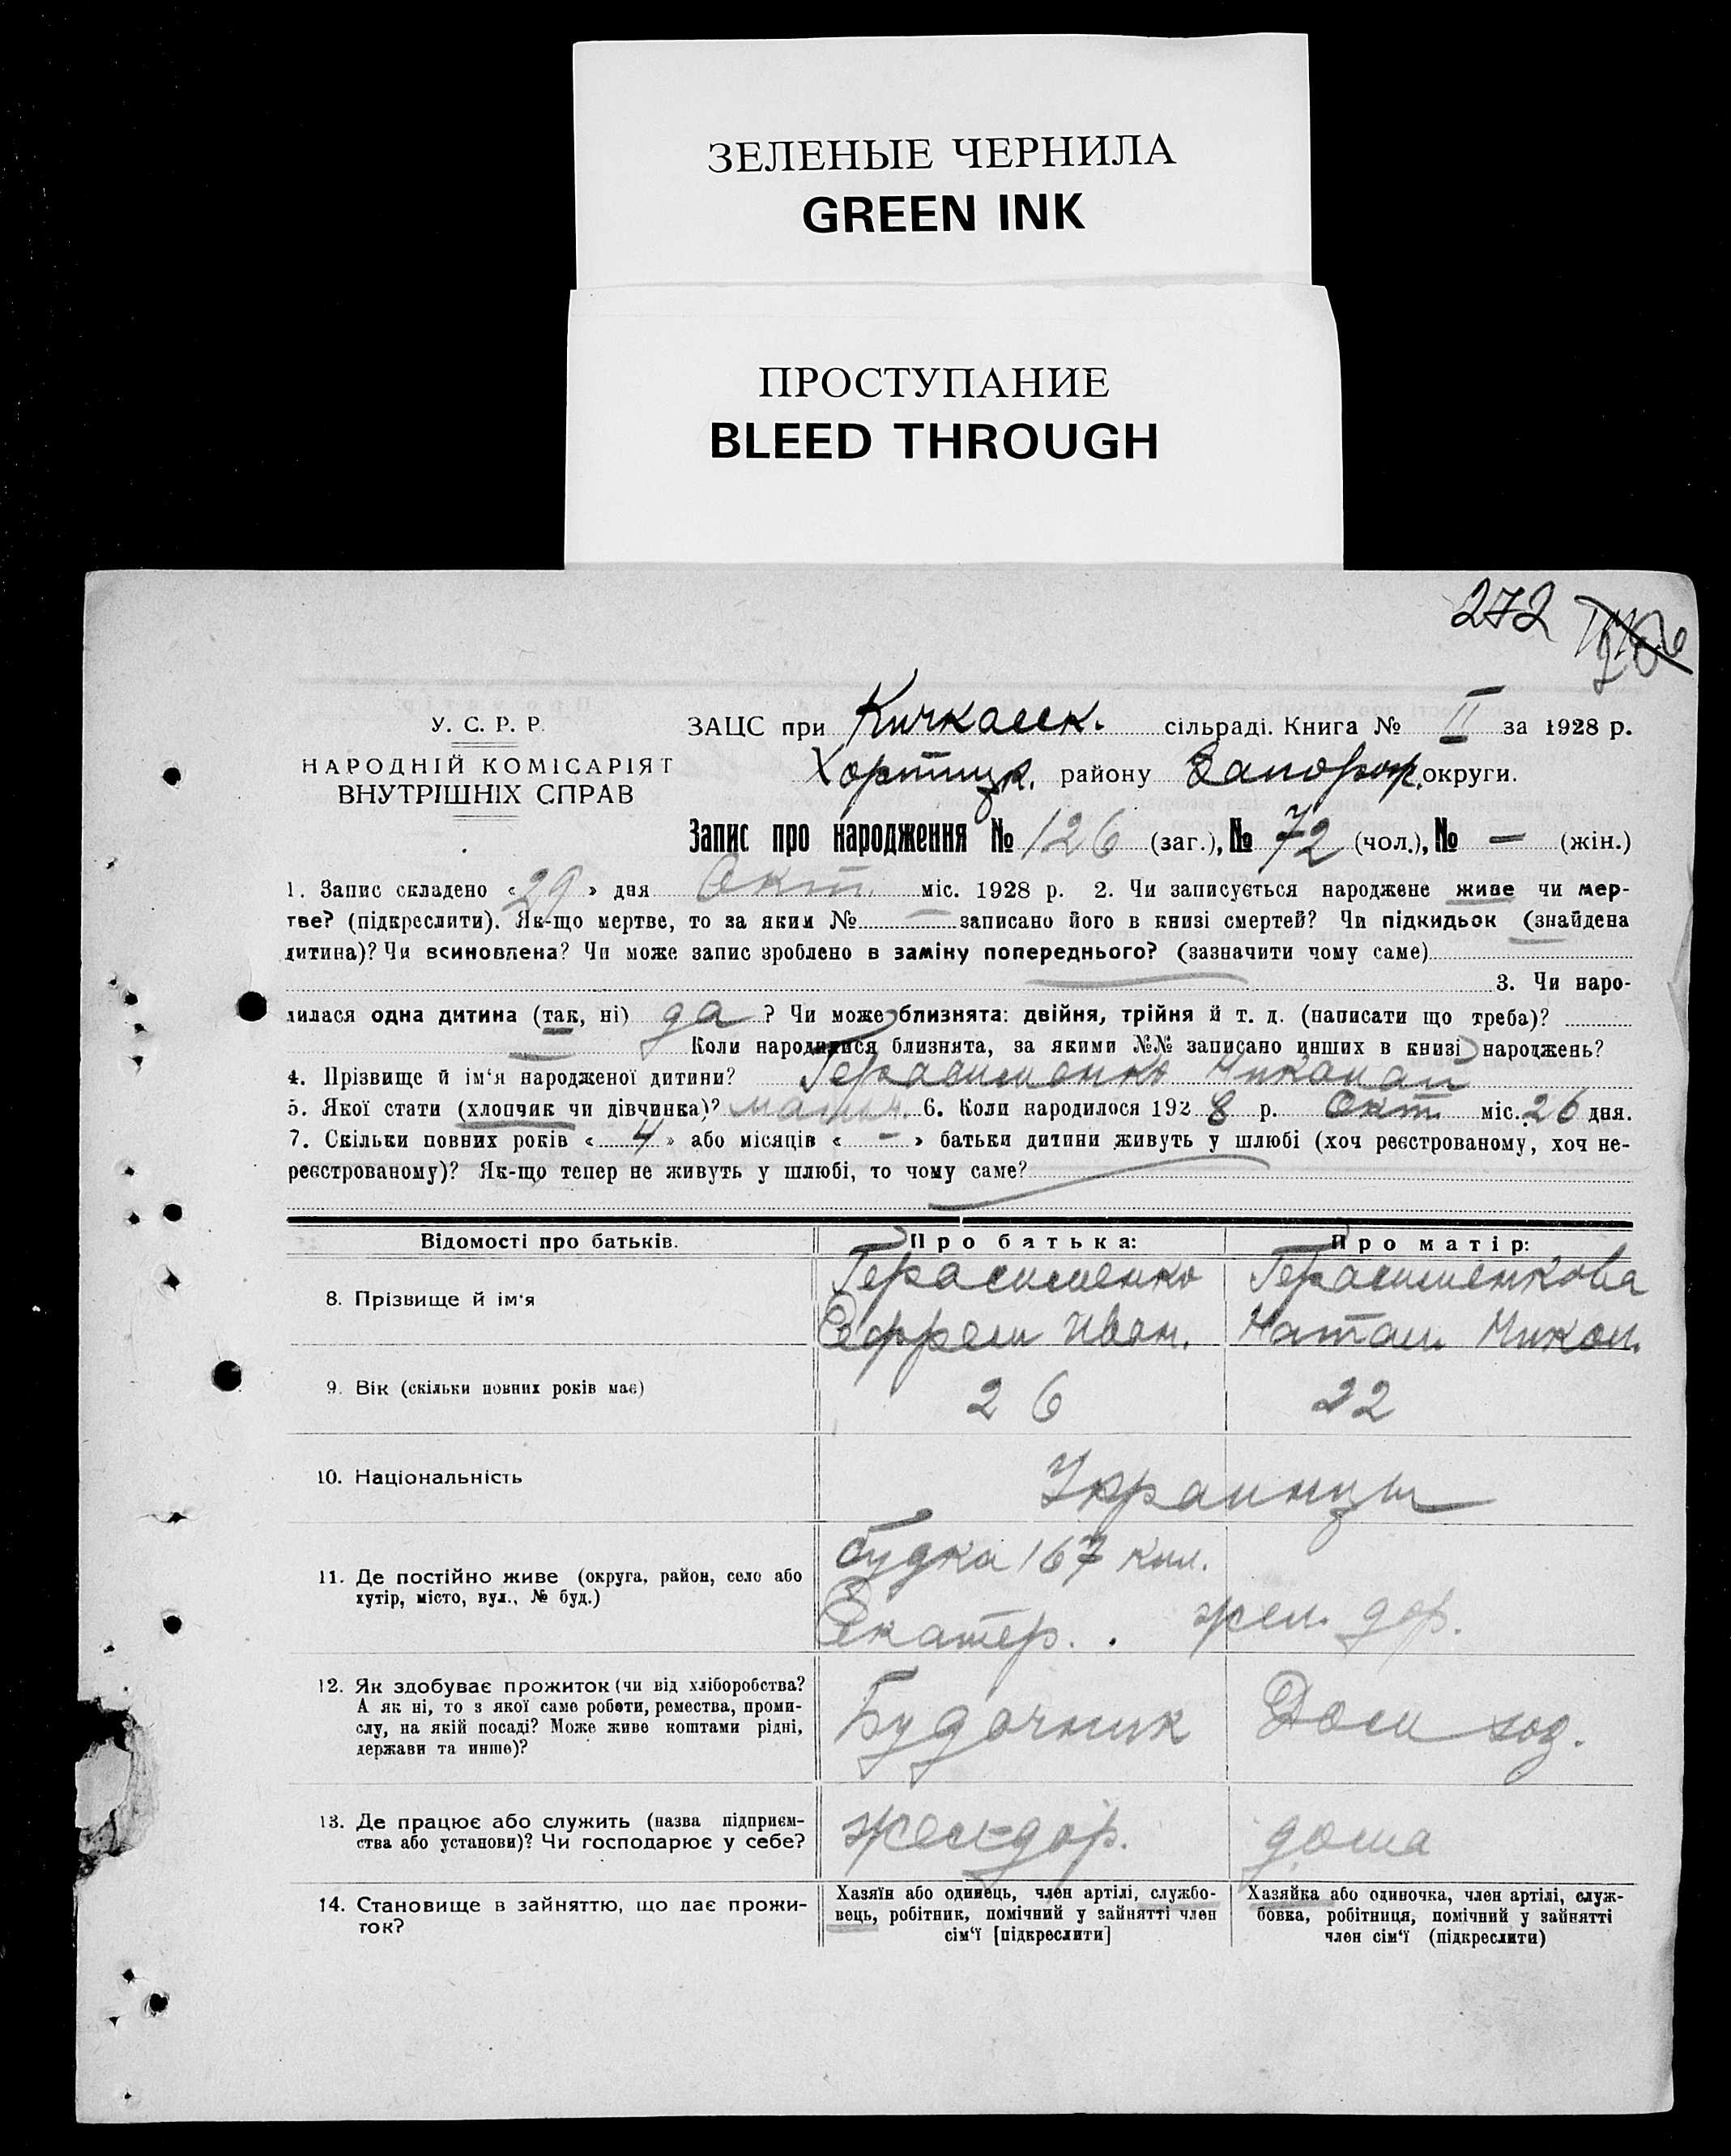 ЗЕЛЕНЫЕ ЧЕРНИЛА
GREEN INK
ПРОСТУПАНИЕ
BLEED THROUGH
272
У. С. Р. Р.
НАРОДНІЙ КОМІСАРІЯТ
ВНУТРІШНІХ СПРАВ
ЗАЦС при Кичкасск. сільраді. Книга № II за 1928 р.
Хортицк. району Запорож. округи.
Запис про народження № 126 (заг.), № 72 (чол.), № — (жін.)
1. Запис складено «29» дня Окт. міс. 1928 р. 2. Чи записується народжене живе чи мер-
тве? (підкреслити). Як-що мертве, то за яким № — записано його в книзі смертей? Чи підкидьок (знайдена
дитина)? Чи всиновлена? Чи може запис зроблено в заміну попереднього? (зазначити чому саме)
3. Чи наро-
дилася одна дитина (так, ні) да ? Чи може близнята: двійня, трійня й т. д. (написати що треба)?
— Коли народилися близнята, за якими №№ записано инших в книзі народжень?
4. Прізвище й ім‘я народженої дитини? Герасименко Николай
5. Якої стати (хлопчик чи дівчинка)? мальч. 6. Коли народилося 1928 р. Окт. міс. 26 дня.
7. Скільки повних років «4» або місяців «-» батьки дитини живуть у шлюбі (хоч реєстрованому, хоч не-
реєстрованому)? Як-що тепер не живуть у шлюбі, то чому саме?
Відомості про батьків. Про батька: Про матір:
8. Прізвище й ім‘я
Герасименко Герасименкова
Ефрем Иван. Натал. Никол.
9. Вік (скільки повних років має) 26 22
10. Національність Украинцы
11. Де постійно живе (округа, район, село або
хутір, місто, вул., № буд.)
будка 167 кил.
Екатер. жел. дор.
12. Як здобуває прожиток (чи від хліборобства?
А як ні, то з якої саме роботи, ремества, проми-
слу, на якій посаді? Може живе коштами рідні,
держави та инше)?
Будочник Дом хоз.
13. Де працює або служить (назва підприєм-
ства або установи)? Чи господарює у себе?
жел-дор. дома
14. Становище в зайняттю, що дає прожи-
ток?
Хазяїн або одинець, член артілі, службо-
вець, робітник, помічний у зайнятті член
сім‘ї [підкреслити]
Хазяйка або одиночка, член артілі, служ-
бовка, робітниця, помічний у зайнятті
член сім‘ї (підкреслити)